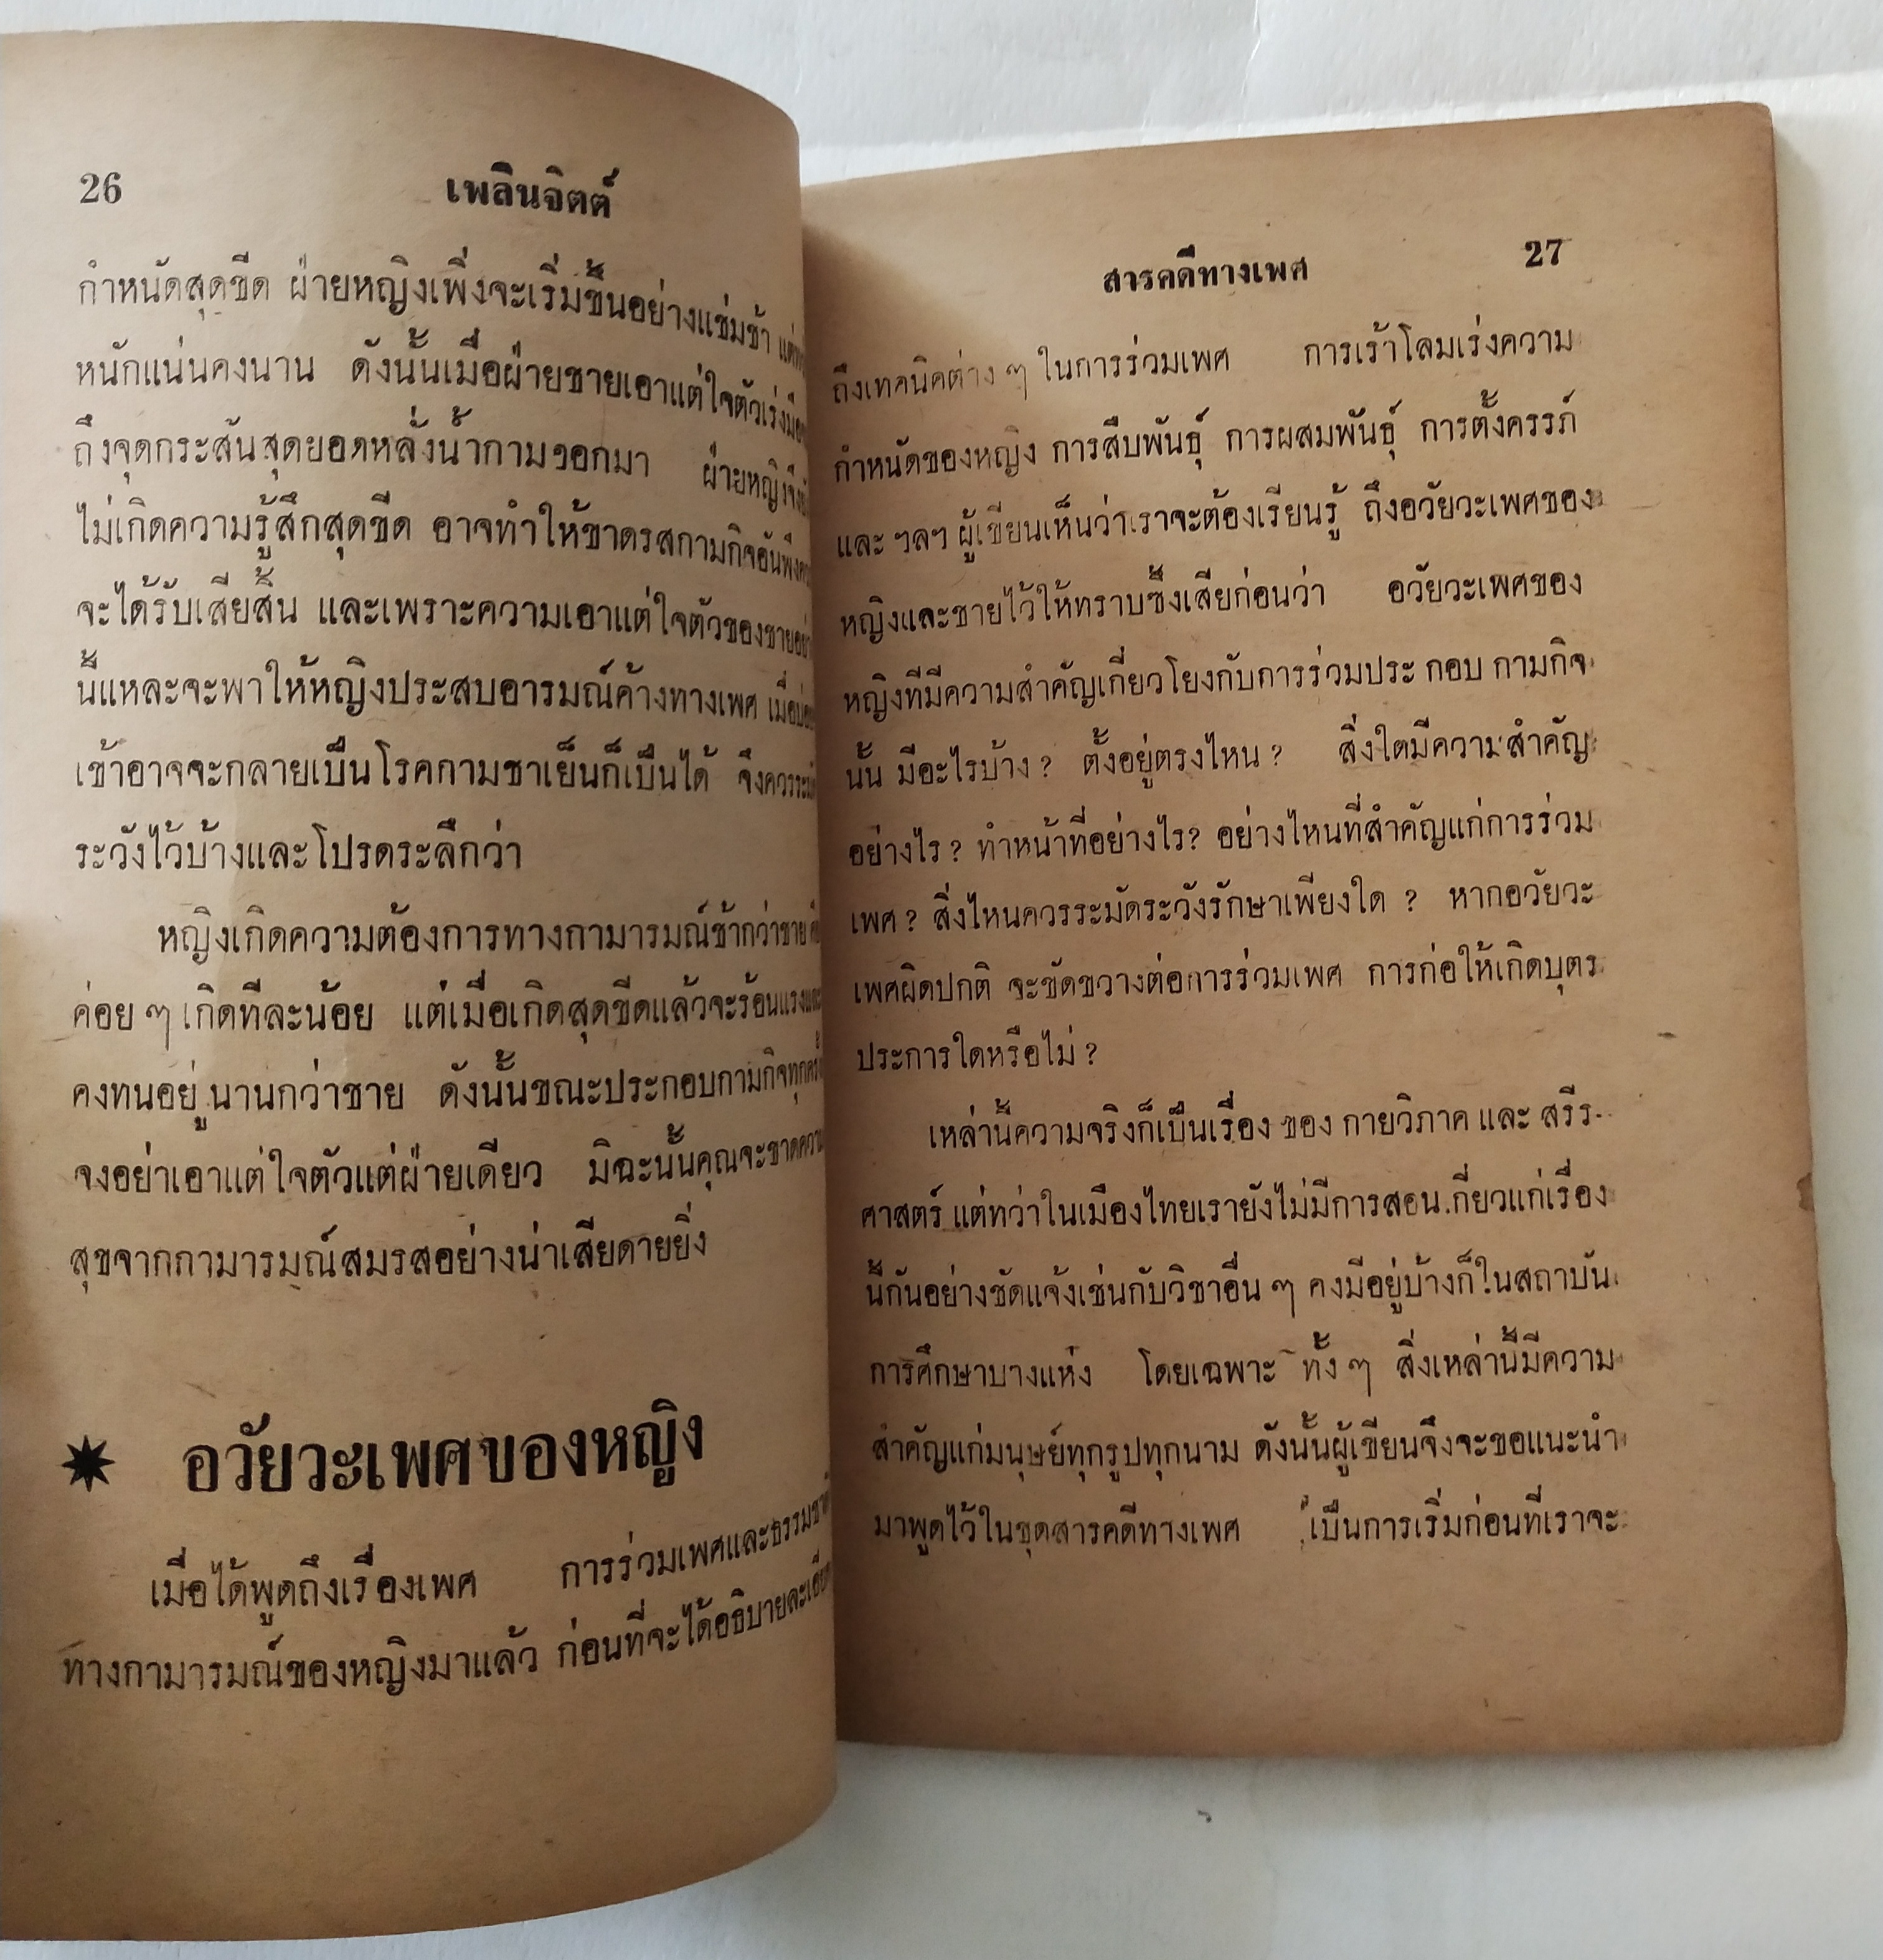 26 เพลินจิตต์
กำหนัดสุดขีด ฝ่ายหญิงเพิ่งจะเริ่มขึ้นอย่างแช่มช้า
หนักแน่นคงนาน ดังนั้นเมื่อฝ่ายชายเอาแต่ใจตัวเร่งมือ
ถึงจุดกระสันสุดยอดหลั่งน้ำกามออกมา ฝ่ายหญิงจึงยัง
ไม่เกิดความรู้สึกสุดขีด อาจทำให้ขาดรสกามกิจอันพึงควร
จะได้รับเสียสิ้น และเพราะความเอาแต่ใจตัวของชายอย่าง
นี้แหละจะพาให้หญิงประสบอารมณ์ค้างทางเพศ เมื่อบ่อย
เข้าอาจจะกลายเป็นโรคกามชาเย็นก็เป็นได้ จึงควร
ระวังไว้บ้างและโปรดระลึกว่า
หญิงเกิดความต้องการทางกามารมณ์ช้ากว่าชาย คือ
ค่อย ๆ เกิดทีละน้อย แต่เมื่อเกิดสุดขีดแล้วจะร้อนแรงและ
คงทนอยู่นานกว่าชาย ดังนั้นขณะประกอบกามกิจทุกครั้ง
จงอย่าเอาแต่ใจตัวแต่ฝ่ายเดียว มิฉะนั้นคุณจะขาดความ
สุขจากกามารมณ์สมรสอย่างน่าเสียดายยิ่ง
อวัยวะเพศของหญิง
เมื่อได้พูดถึงเรื่องเพศ การร่วมเพศและธรรมชาติ
ทางกามารมณ์ของหญิงมาแล้ว ก่อนที่จะได้อธิบายละเอียด
สารคดีทางเพศ 27
ถึงเทคนิคต่าง ๆ ในการร่วมเพศ การเร้าโลมเร่งความ
กำหนัดของหญิง การสืบพันธุ์ การผสมพันธุ์ การตั้งครรภ์
และ ฯลฯ ผู้เขียนเห็นว่าเราจะต้องเรียนรู้ ถึงอวัยวะเพศของ
หญิงและชายไว้ให้ทราบซึ้งเสียก่อนว่า อวัยวะเพศของ
หญิงที่มีความสำคัญเกี่ยวโยงกับการร่วมประ กอบ กามกิจ
นั้น มีอะไรบ้าง ? ตั้งอยู่ตรงไหน ? สิ่งใดมีความสำคัญ
อย่างไร ? ทำหน้าที่อย่างไร? อย่างไหนที่สำคัญแก่การร่วม
เพศ ? สิ่งไหนควรระมัดระวังรักษาเพียงใด ? หากอวัยวะ
เพศผิดปกติ จะขัดขวางต่อการร่วมเพศ การก่อให้เกิดบุตร
ประการใดหรือไม่ ?
เหล่านี้ความจริงก็เป็นเรื่อง ของ กายวิภาค และ สรีร-
ศาสตร์ แต่ทว่าในเมืองไทยเรายังไม่มีการสอนเกี่ยวแก่เรื่อง
นี้กันอย่างชัดแจ้งเช่นกับวิชาอื่น ๆ คงมีอยู่บ้างก็ในสถาบัน
การศึกษาบางแห่ง โดยเฉพาะ ทั้ง ๆ สิ่งเหล่านี้มีความ
สำคัญแก่มนุษย์ทุกรูปทุกนาม ดังนั้นผู้เขียนจึงจะขอแนะนำ
มาพูดไว้ในชุดสารคดีทางเพศ เป็นการเริ่มก่อนที่เราจะ